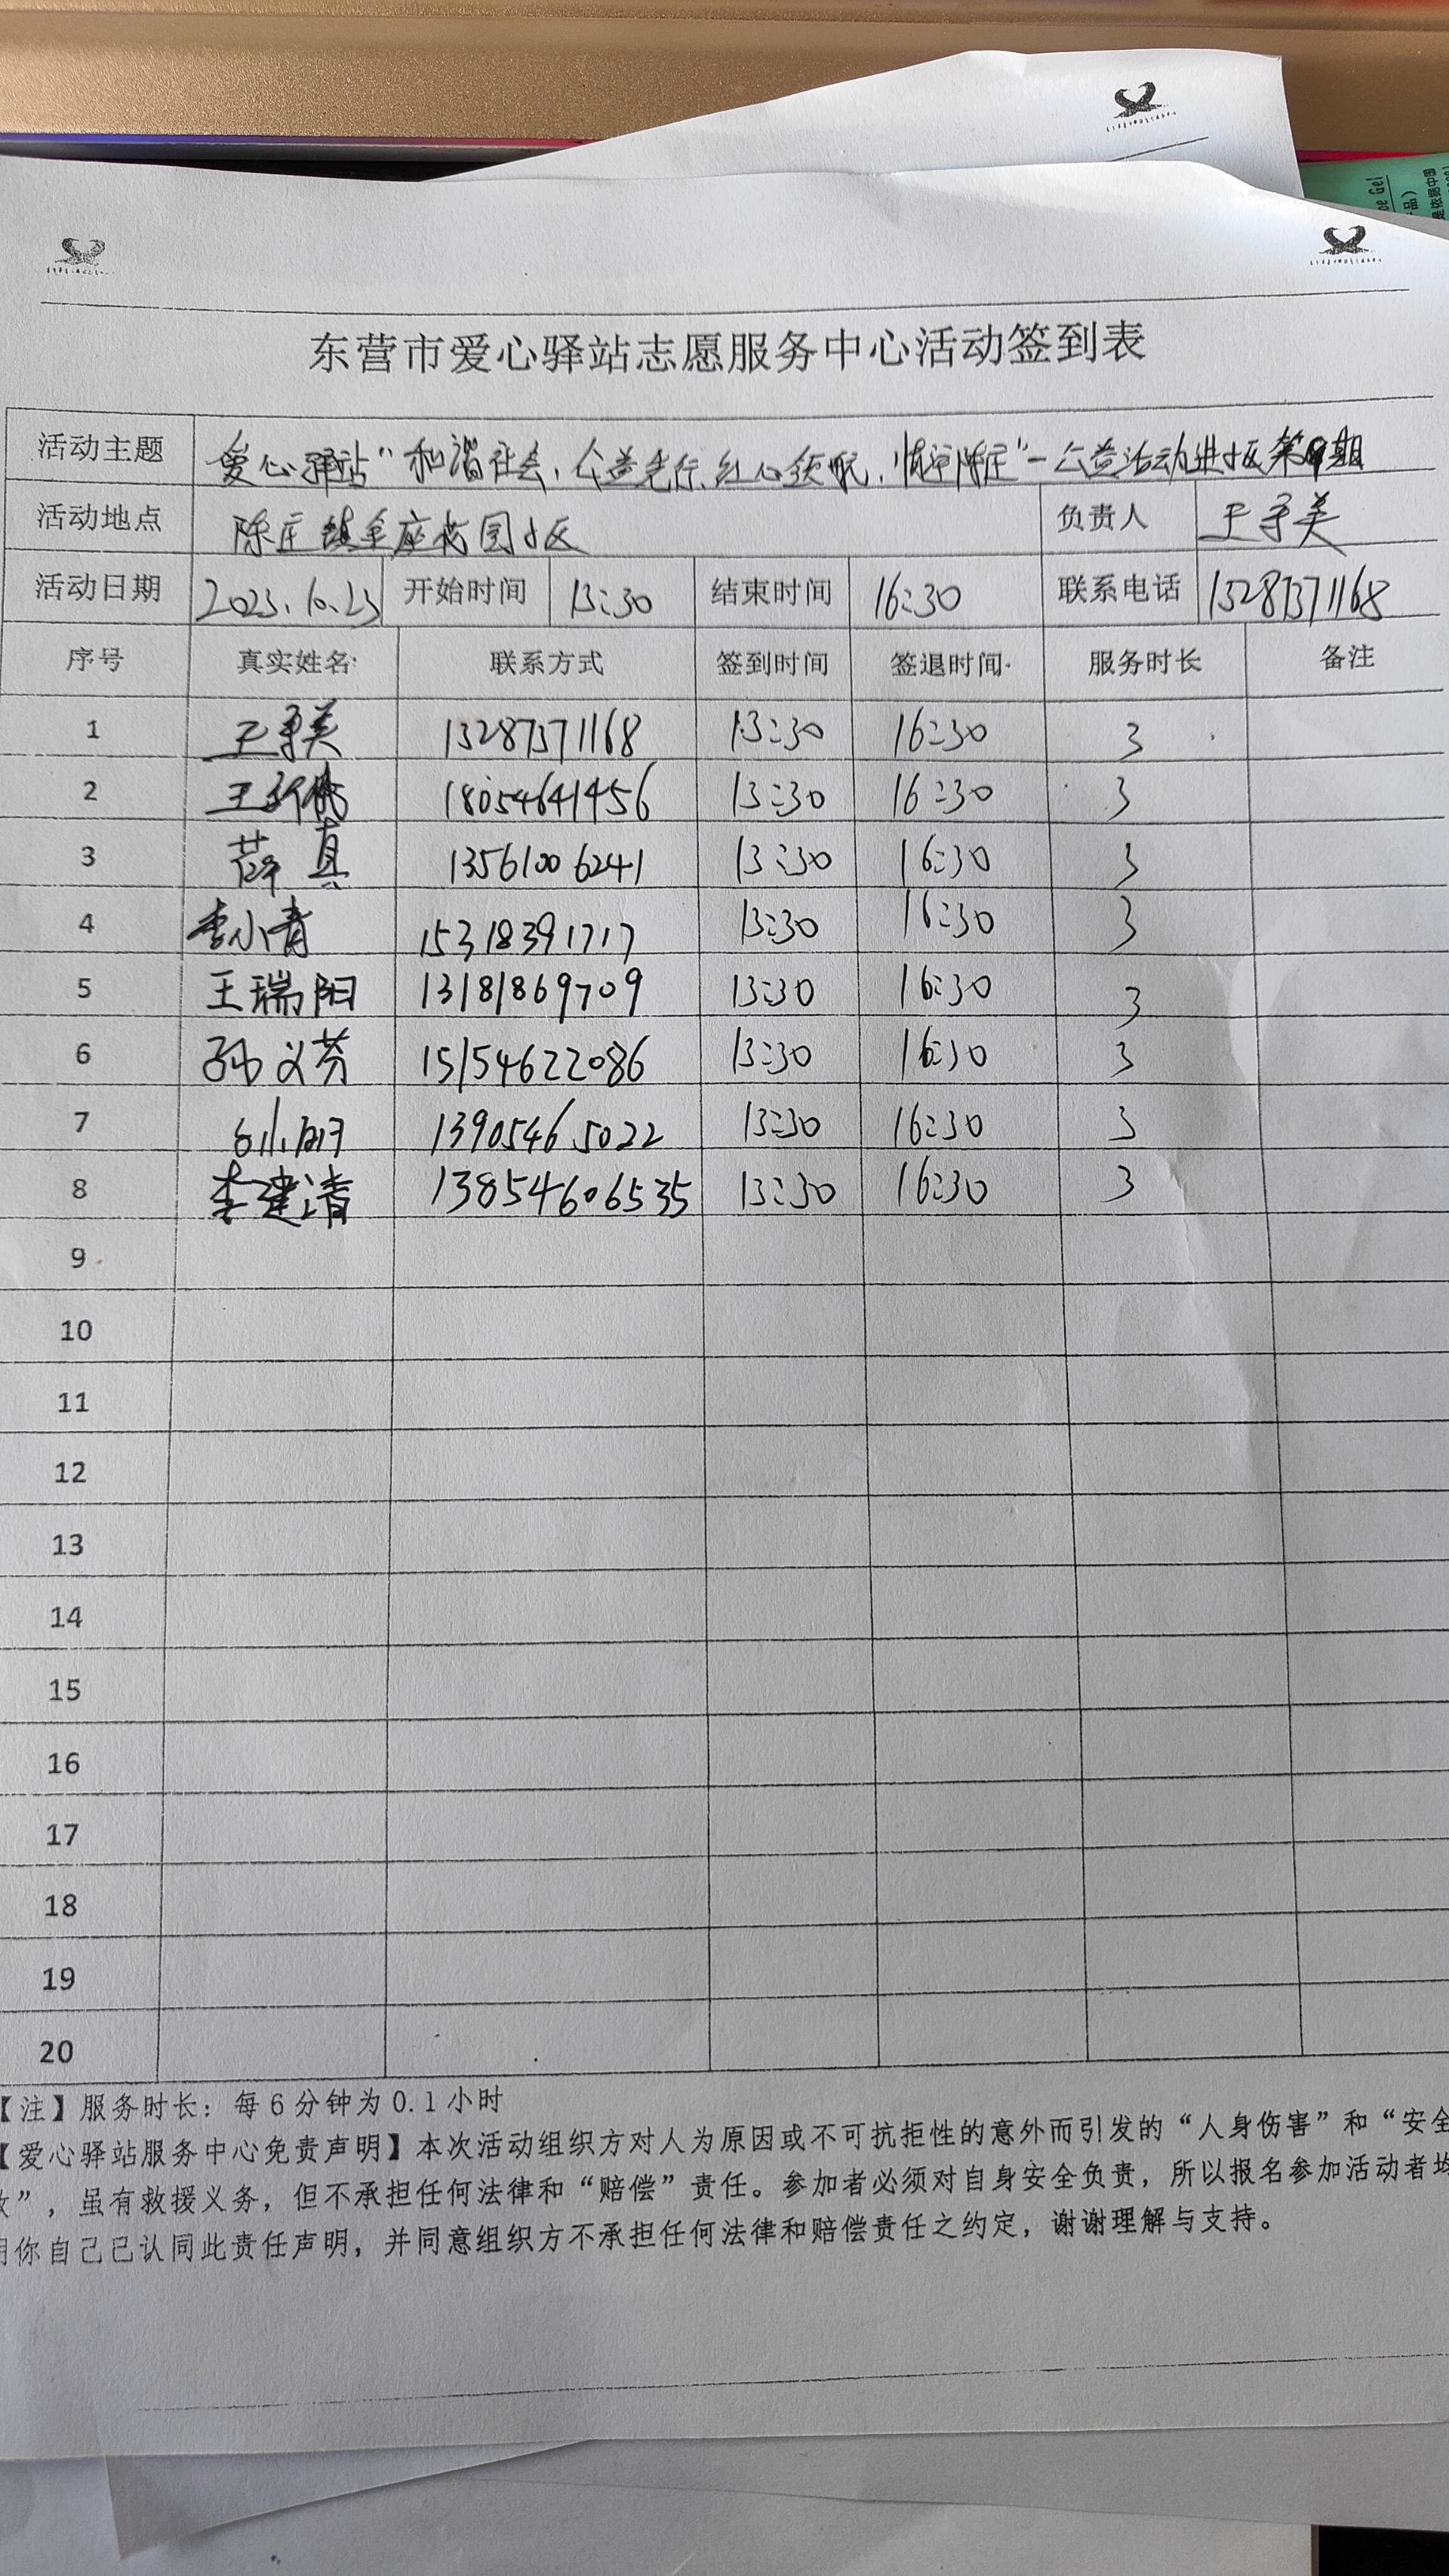 东营市爱心驿站志愿服务中心活动签到表
活动主题 爱心驿站"和谐社会,公益先行,红心领航,情润陈庄"-公益活动进小区第9期
活动地点 陈庄镇金座花园小区 负责人 王予美
活动日期 2023.10.23 开始时间 13:30 结束时间 16:30 联系电话 13287371168
序号 真实姓名 联系方式 签到时间 签退时间 服务时长 备注
1 王予美 13287371168 13:30 16:30 3
2 18054641456 13:30 16:30 3
3 薛真 13561006241 13:30 16:30 3
4 李小青 15318391717 13:30 16:30 3
5 王瑞阳 13181869709 13:30 16:30 3
6 孙义芳 15154622086 13:30 16:30 3
7 13905465022 13:30 16:30 3
8 李建清 13854606535 13:30 16:30 3
9
10
11
12
13
14
15
16
17
18
19
20
【注】服务时长：每6分钟为0.1小时
【爱心驿站服务中心免责声明】本次活动组织方对人为原因或不可抗拒性的意外而引发的“人身伤害”和“安全
”，虽有救援义务，但不承担任何法律和“赔偿”责任。参加者必须对自身安全负责，所以报名参加活动者均
你自己已认同此责任声明，并同意组织方不承担任何法律和赔偿责任之约定，谢谢理解与支持。